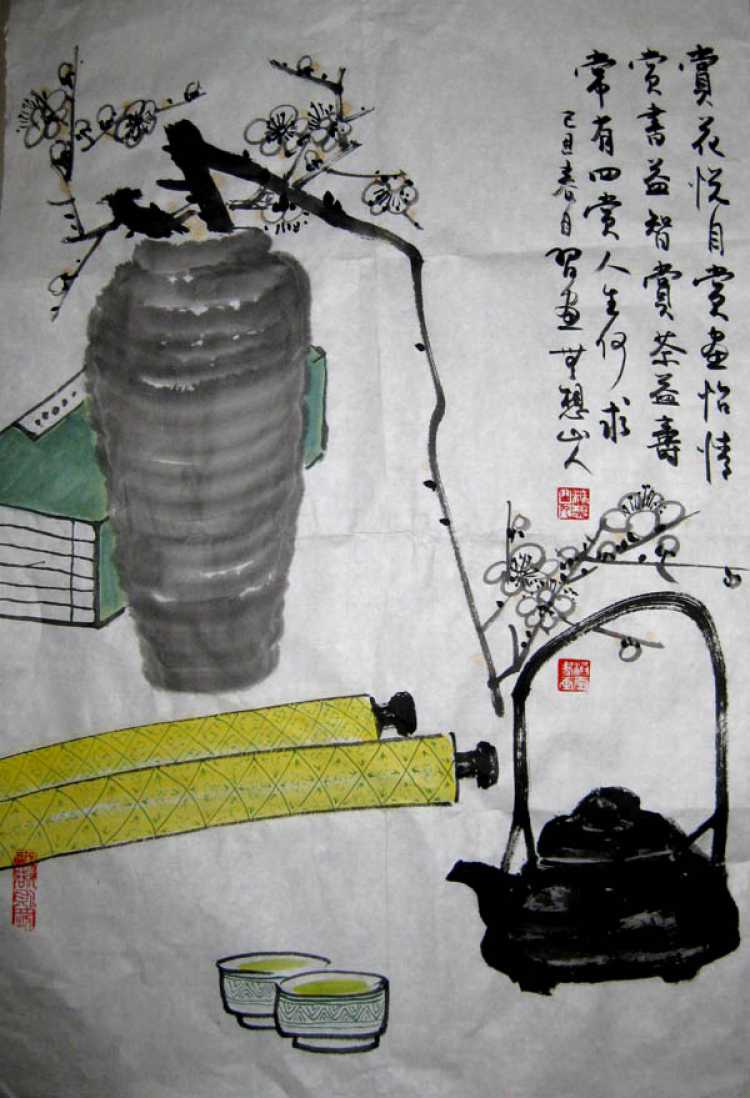 賞花悦目賞画怡情
賞書益智賞茶益壽
常有四赏人生何求
己丑春月習画梦想山人